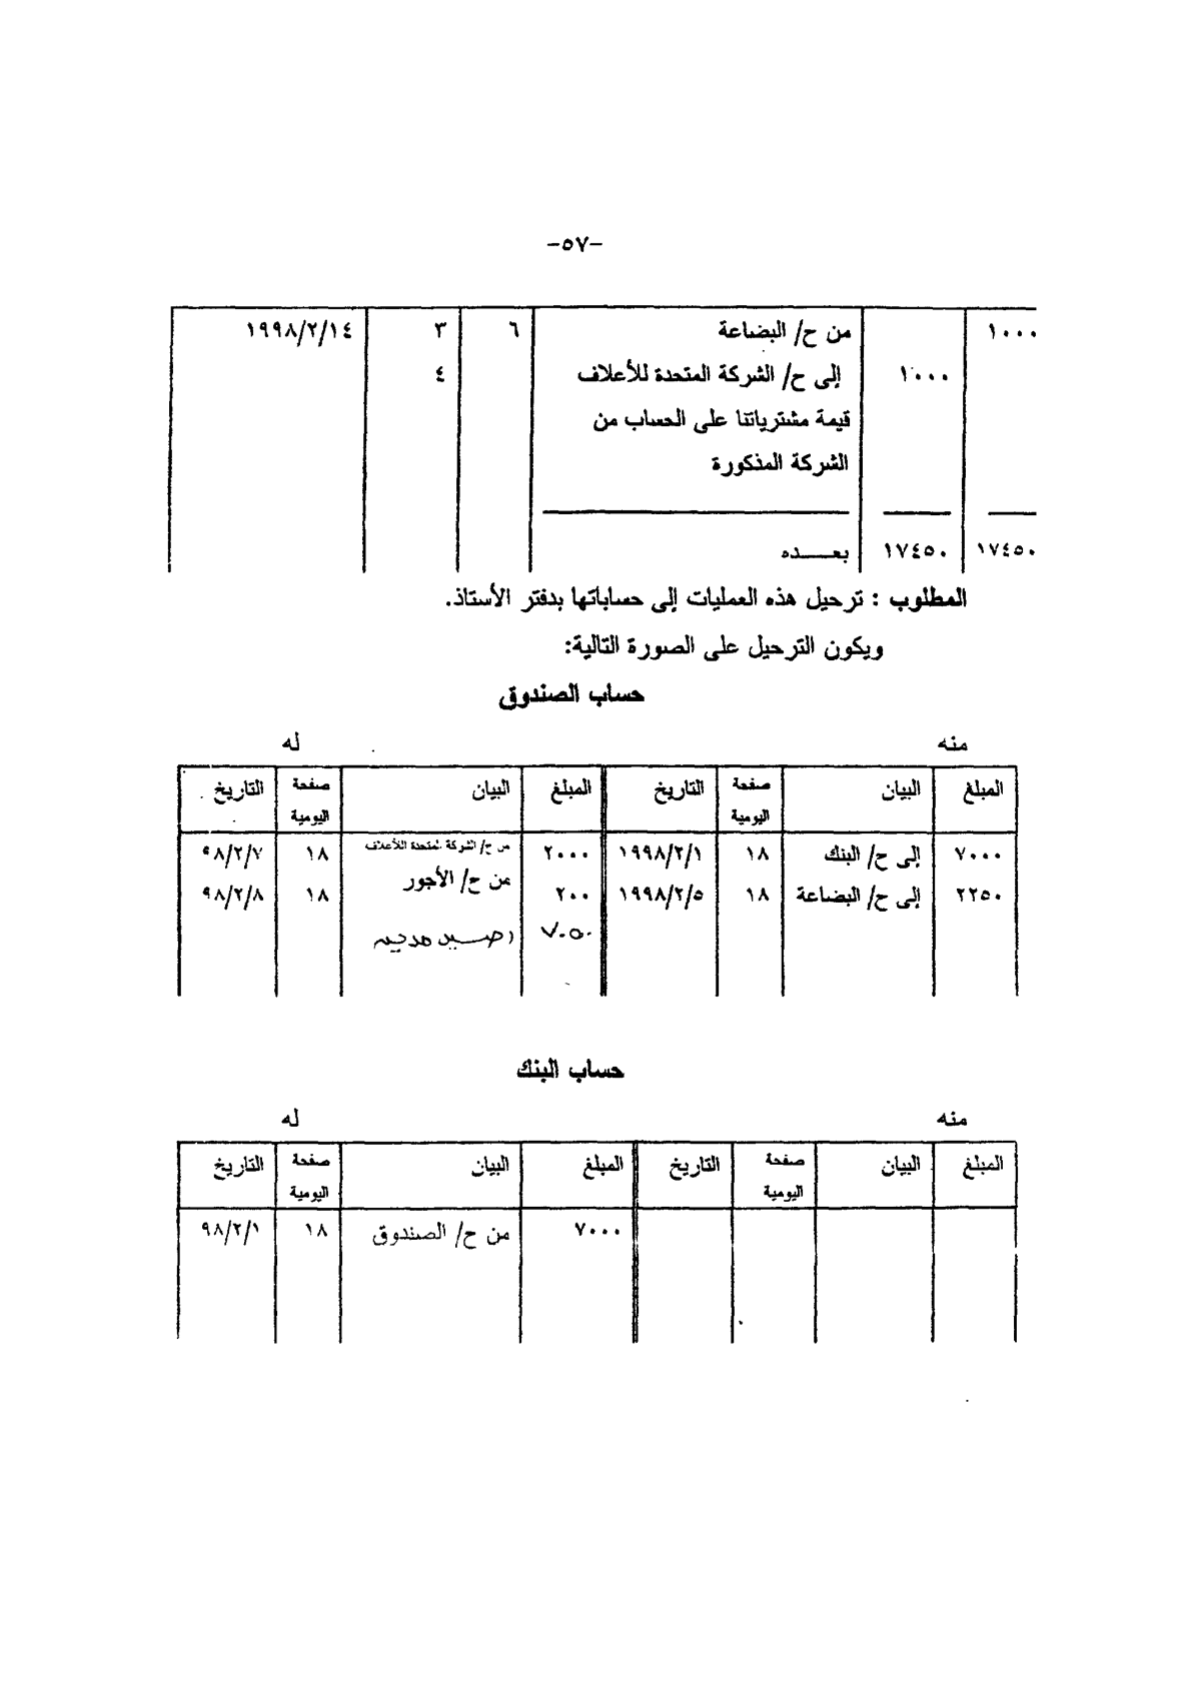 -٥٧-
١٠٠٠ من ح/ البضاعة ٦ ٣ ١٩٩٨/٢/١٤
١٠٠٠ إلى ح/ الشركة المتحدة للأعلاف ٤
قيمة مشترياتنا على الحساب من
الشركة المذكورة
١٧٤٥٠ ١٧٤٥٠ بعــــده
المطلوب : ترحيل هذه العمليات إلى حساباتها بدفتر الأستاذ.
ويكون الترحيل على الصورة التالية:
حساب الصندوق
منه له
المبلغ البيان صفحة اليومية التاريخ المبلغ البيان صفحة اليومية التاريخ
٧٠٠٠ إلى ح/ البنك ١٨ ١٩٩٨/٢/١ ٢٠٠٠ من ح/ الشركة المتحدة للأعلاف ١٨ ٩٨/٢/٧
٢٢٥٠ إلى ح/ البضاعة ١٨ ١٩٩٨/٢/٥ ٢٠٠ من ح/ الأجور ١٨ ٩٨/٢/٨
٧٠٥٠
حساب البنك
منه له
المبلغ البيان صفحة اليومية التاريخ المبلغ البيان صفحة اليومية التاريخ
٧٠٠٠ من ح/ الصندوق ١٨ ٩٨/٢/١